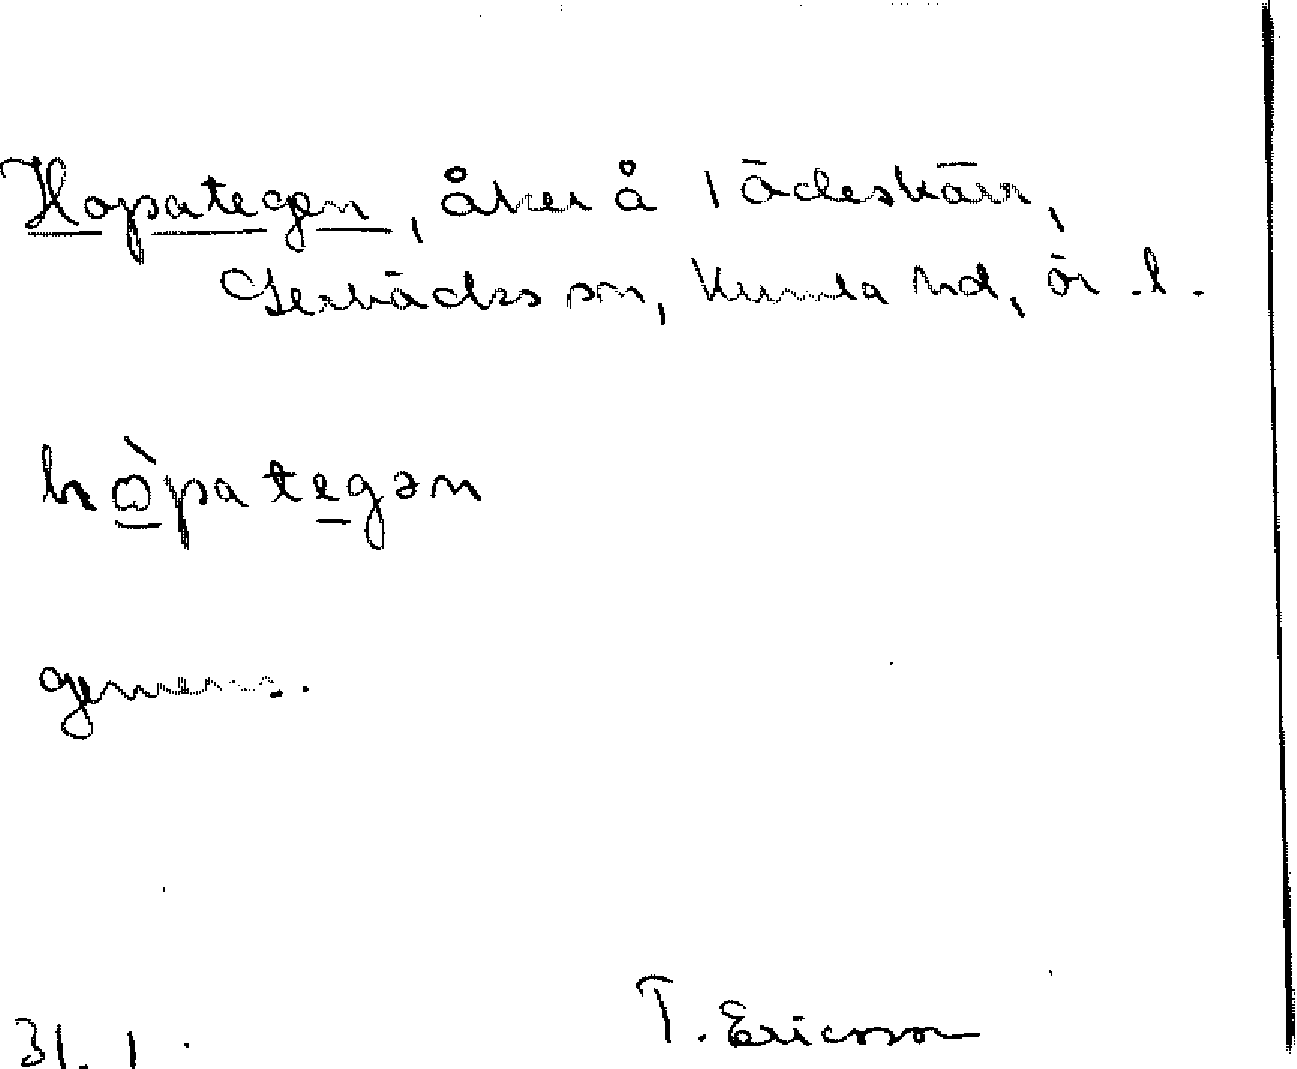 Hopategen, åker å Lädeskärr,
Gerkäds sn, Kumla hd, ör. l.
hòpategən
gemens.
31. 1.
T. Ericsson